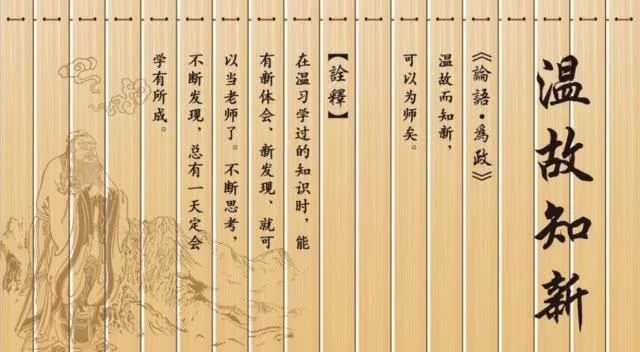 温故知新
《論語·爲政》
温故而知新，
可以为师矣。
【詮釋】
在温习学过的知识时，能
有新体会、新发现、就可
以当老师了。不断思考，
不断发现，总有一天定会
学有所成。